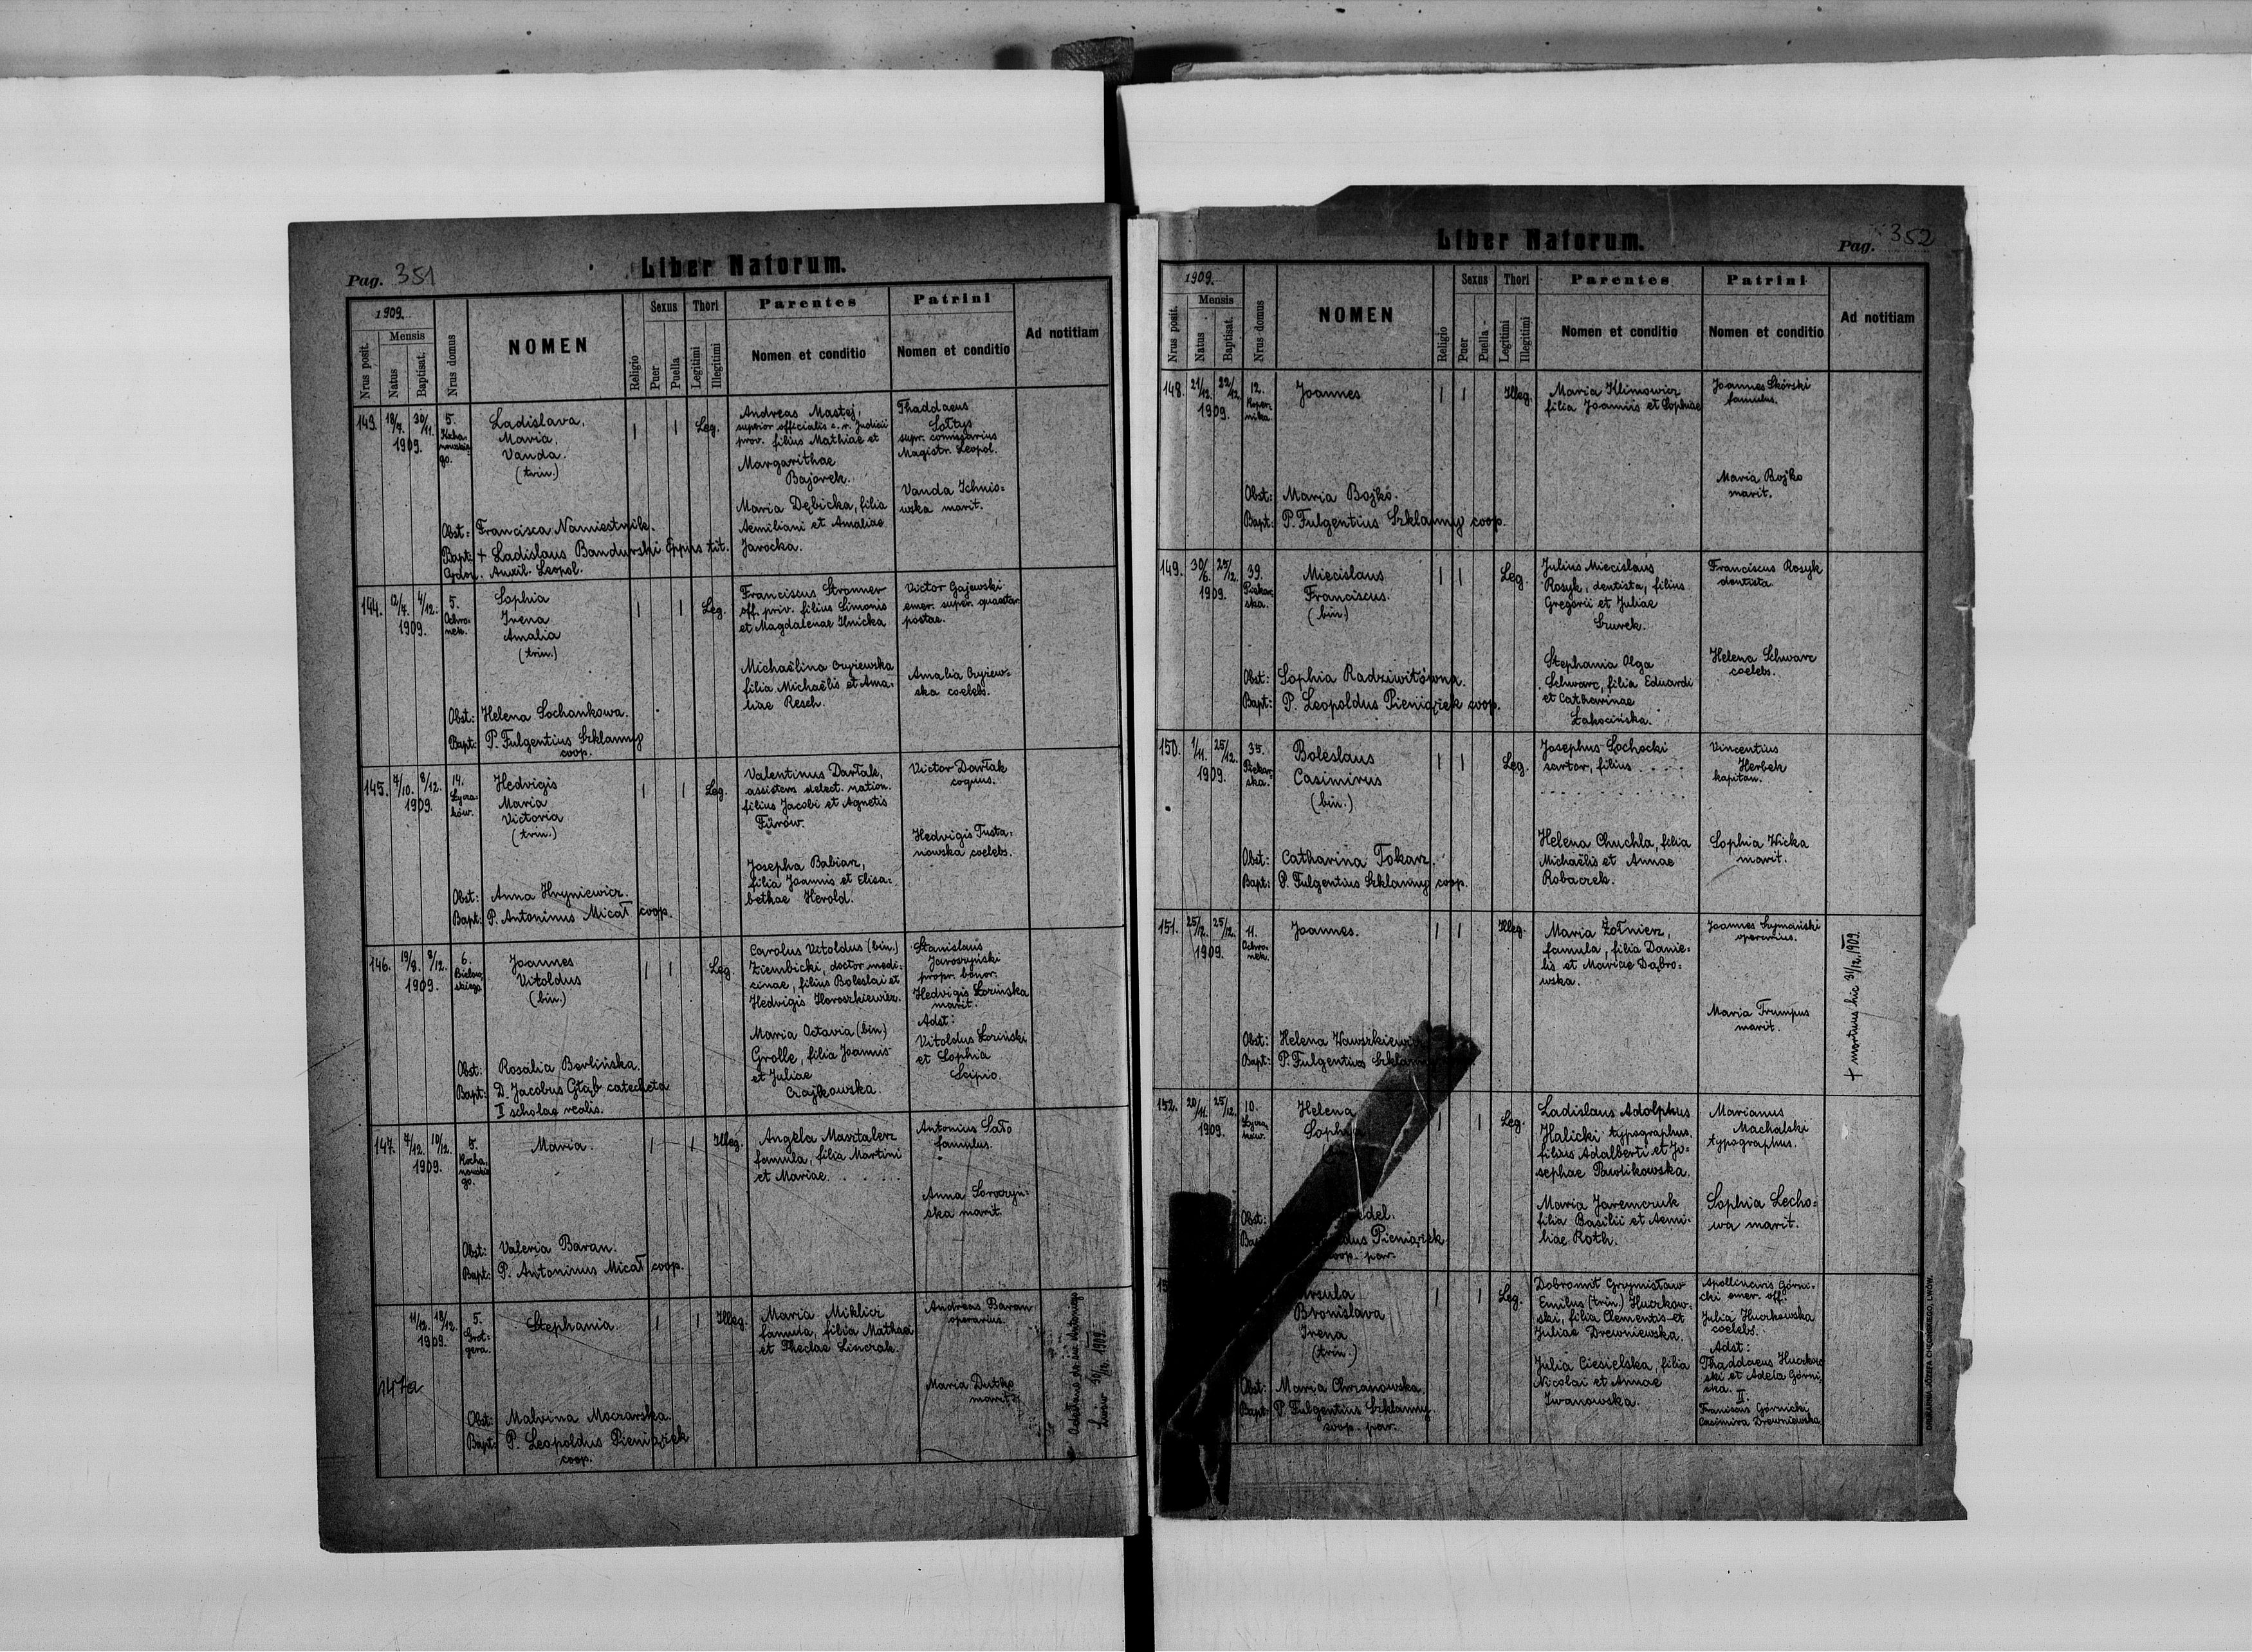 Pag. 351
Liber Natorum.
1909.
Nrus posit.
Mensis
Natus
Baptisat.
Nrus domus
NOMEN
Religio
Sexus
Puer
Puella
Thori
Legitimi
Illegitimi
Parentes
Nomen et conditio
Patrini
Nomen et conditio
Ad notitiam
143. 18/7. 30/11. 1909.
5. Kochanowskiego.
Ladislava,
Maria,
Vanda.
(trin.)
Obst: Francisca Namiestnik.
Bapt: + Ladislaus Bandurski Eppus tit.
Auxil. Leopol.
Leg.
Andreas Mastej,
superior officialis c. r. Judicii
prov. filius Mathiae et
Margarithae
Bajorek.
Maria Dębicka, filia
Aemiliani et Amaliae
Jarocka.
Thaddaeus
Sołtys
supr. comissarius
Magistr. Leopol.
Vanda Ichnio-
wska marit.
144. 12/7. 4/12. 1909.
5. Ochronek.
Sophia
Irena
Amalia
(trin.)
Obst: Helena Sochankowa.
Bapt: P. Fulgentius Szklanny
coop.
Leg.
Franciscus Stronner
off. priv. filius Simonis
et Magdalenae Ilnicka
Michaëlina
filia Michaëlis et Ama-
liae Resch.
Victor Gajewski
emer. super. quaestor
postae.
Amalia
ska coelebs.
145. 7/10. 8/12. 1909.
14. Łyczaków.
Hedvigis
Maria
Victoria
(trin.)
Obst: Anna Hryniewicz.
Bapt: P. Antoninus Micał coop.
Leg.
Valentinus Darłak,
assistens select. nation.
filius Jacobi et Agnetis
Fürów.
Josepha Babiarz,
filia Joannis et Elisa-
bethae Herold.
Victor Darłak
coquus.
Hedvigis Tusta-
nowska coelebs.
146. 19/8. 8/12. 1909.
6.
Joannes
Vitoldus
(bin.)
Obst: Rosalia Berlińska.
Bapt: D. Jacobus Głąb catecheta
II scholae realis.
Leg.
Carolus Vitoldus (bin.)
Ziembicki, doctor medi-
cinae, filius Boleslai et
Hedvigis Horoszkiewicz.
Maria Octavia (bin.)
Grolle, filia Joannis
et Juliae
Czajkowska.
Stanislaus
Jaroszyński
propr. bonor.
Hedvigis Łozińska
marit.
Adst:
Vitoldus Łoziński
et Sophia
Scipio.
147. 7/12. 10/12. 1909.
5. Kochanowskiego.
Maria.
Obst: Valeria Baran.
Bapt: P. Antoninus Micał coop.
Illeg.
Angela Masztalerz
famula, filia Martini
et Mariae.
Antonius Sało
famulus.
Anna Soroczyń-
ska marit.
147a
11/12. 18/12. 1909.
5. Grottgera.
Stephania.
Obst: Malvina Moczarska.
Bapt: P. Leopoldus Pieniążek
coop.
Illeg.
Maria Miklicz
famula, filia Mathaei
et Theclae Linczak.
Andreas Baran
operarius.
Maria Dutko
marit.
Liber Natorum.
Pag. 352
1909.
Nrus posit.
Mensis
Natus
Baptisat.
Nrus domus
NOMEN
Religio
Sexus
Puer
Puella
Thori
Legitimi
Illegitimi
Parentes
Nomen et conditio
Patrini
Nomen et conditio
Ad notitiam
148. 21/12. 22/12. 1909.
12. Kopernika.
Joannes
Obst: Maria Bojkó.
Bapt: P. Fulgentius Szklanny coop.
Illeg.
Maria Klimowicz
filia Joannis et Sophiae
Joannes Skórski
famulus.
Maria Bojko
marit.
149. 30/6. 25/12. 1909.
39. Piekarska.
Miecislaus
Franciscus.
(bin.)
Obst: Sophia Radziwiłówna.
Bapt: P. Leopoldus Pieniążek coop.
Leg.
Julius Miecislaus
Rosyk, dentista, filius
Gregorii et Juliae
Szurek.
Stephania Olga
Schwarc, filia Eduardi
et Catharinae
Żahocińska.
Franciscus Rosyk
dentista.
Helena Schwarc
coelebs.
150. 1/11. 25/12. 1909.
35. Piekarska.
Boleslaus
Casimirus
(bin.)
Obst: Catharina Tokarz.
Bapt: P. Fulgentius Szklanny coop.
Leg.
Josephus Sochocki
sartor, filius . . . .
Helena Chuchla, filia
Michaëlis et Annae
Robaczek.
Vincentius
Herbek
kapitan.
Sophia Wicka
marit.
151. 25/12. 25/12. 1909.
11. Ochronek.
Joannes.
Obst: Helena
Bapt: P. Fulgentius
Illeg.
Maria Żołnierz,
famula, filia Danie-
lis et Mariae Dąbro-
wska.
Joannes Szymański
operarius.
Maria Trumpus
marit.
+ mortuus hic 31/12. 1909.
152. 20/11. 25/12. 1909.
10. Łyczaków.
Helena
Obst: edel.
dus Pieniążek
coop. par.
Leg.
Ladislaus Adolphus
Halicki typographus.
filius Adalberti et Jo-
sephae Pawlikowska.
Maria Jaremczuk
filia Basilii et Aemi-
liae Roth.
Marianus
Machalski
typographus.
Sophia Lecho-
wa marit.
rsula
Bronislava
Irena
(trin.)
Obst: Maria Chrzanowska.
Bapt: P. Fulgentius Szklanny
coop. par.
Leg.
Dobromit Grzymisław
Emilus (trin.) Huczkow-
ski, filia Clementis et
Juliae Drewniewska.
Julia Ciesielska, filia
Nicolai et Annae
Iwanowska.
Apollinaris Górni-
cki emer. off.
Julia Huczkowska
coelebs.
Adst:
Thaddaeus Huczkow
ski et Adela Górni
cka. II.
Franciscus Górnicki
Casimira Drewniewska
DRUKARNIA JÓZEFA CHĘCIŃSKIEGO, LWÓW.